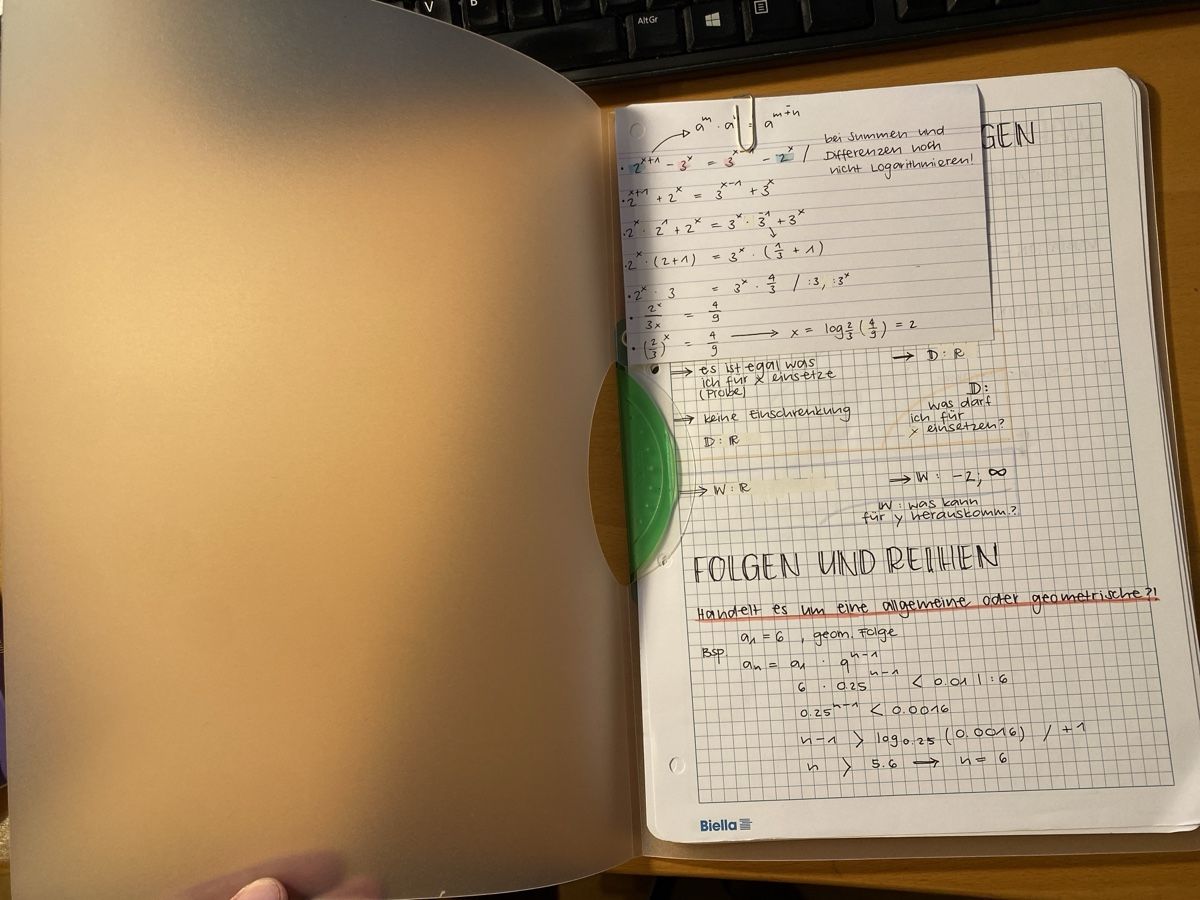 V
B
AltGr
a^m · a = a^{m+n}
· 2^{x+1} - 3^x = 3^{x-1} - 2^x /
bei Summen und
Differenzen noch
nicht Logarithmieren!
GEN
· 2^{x+1} + 2^x = 3^{x-1} + 3^x
· 2^x · 2^1 + 2^x = 3^x · 3^{-1} + 3^x
· 2^x · (2+1) = 3^x · (1/3 + 1)
· 2^x · 3 = 3^x · 4/3 / :3, :3^x
· 2^x/3x = 4/9
· (2/3)^x = 4/9 → x = log 2/3 (4/9) = 2
→ es ist egal was
ich für x einsetze
(Probe)
→ D: R
→ keine Einschrenkung
D: R
D:
was darf
ich für
x einsetzen?
→ W: R
→ W: -2; ∞
W: was kann
für y herauskomm.?
FOLGEN UND REIHEN
Handelt es um eine allgemeine oder geometrische?!
a1 = 6 , geom. Folge
Bsp.
an = a1 · q^{n-1}
6 · 0.25^{n-1} < 0.01 | :6
0.25^{n-1} < 0.0016
n-1 > log0.25 (0.0016) / +1
n > 5.6 → n = 6
Biella